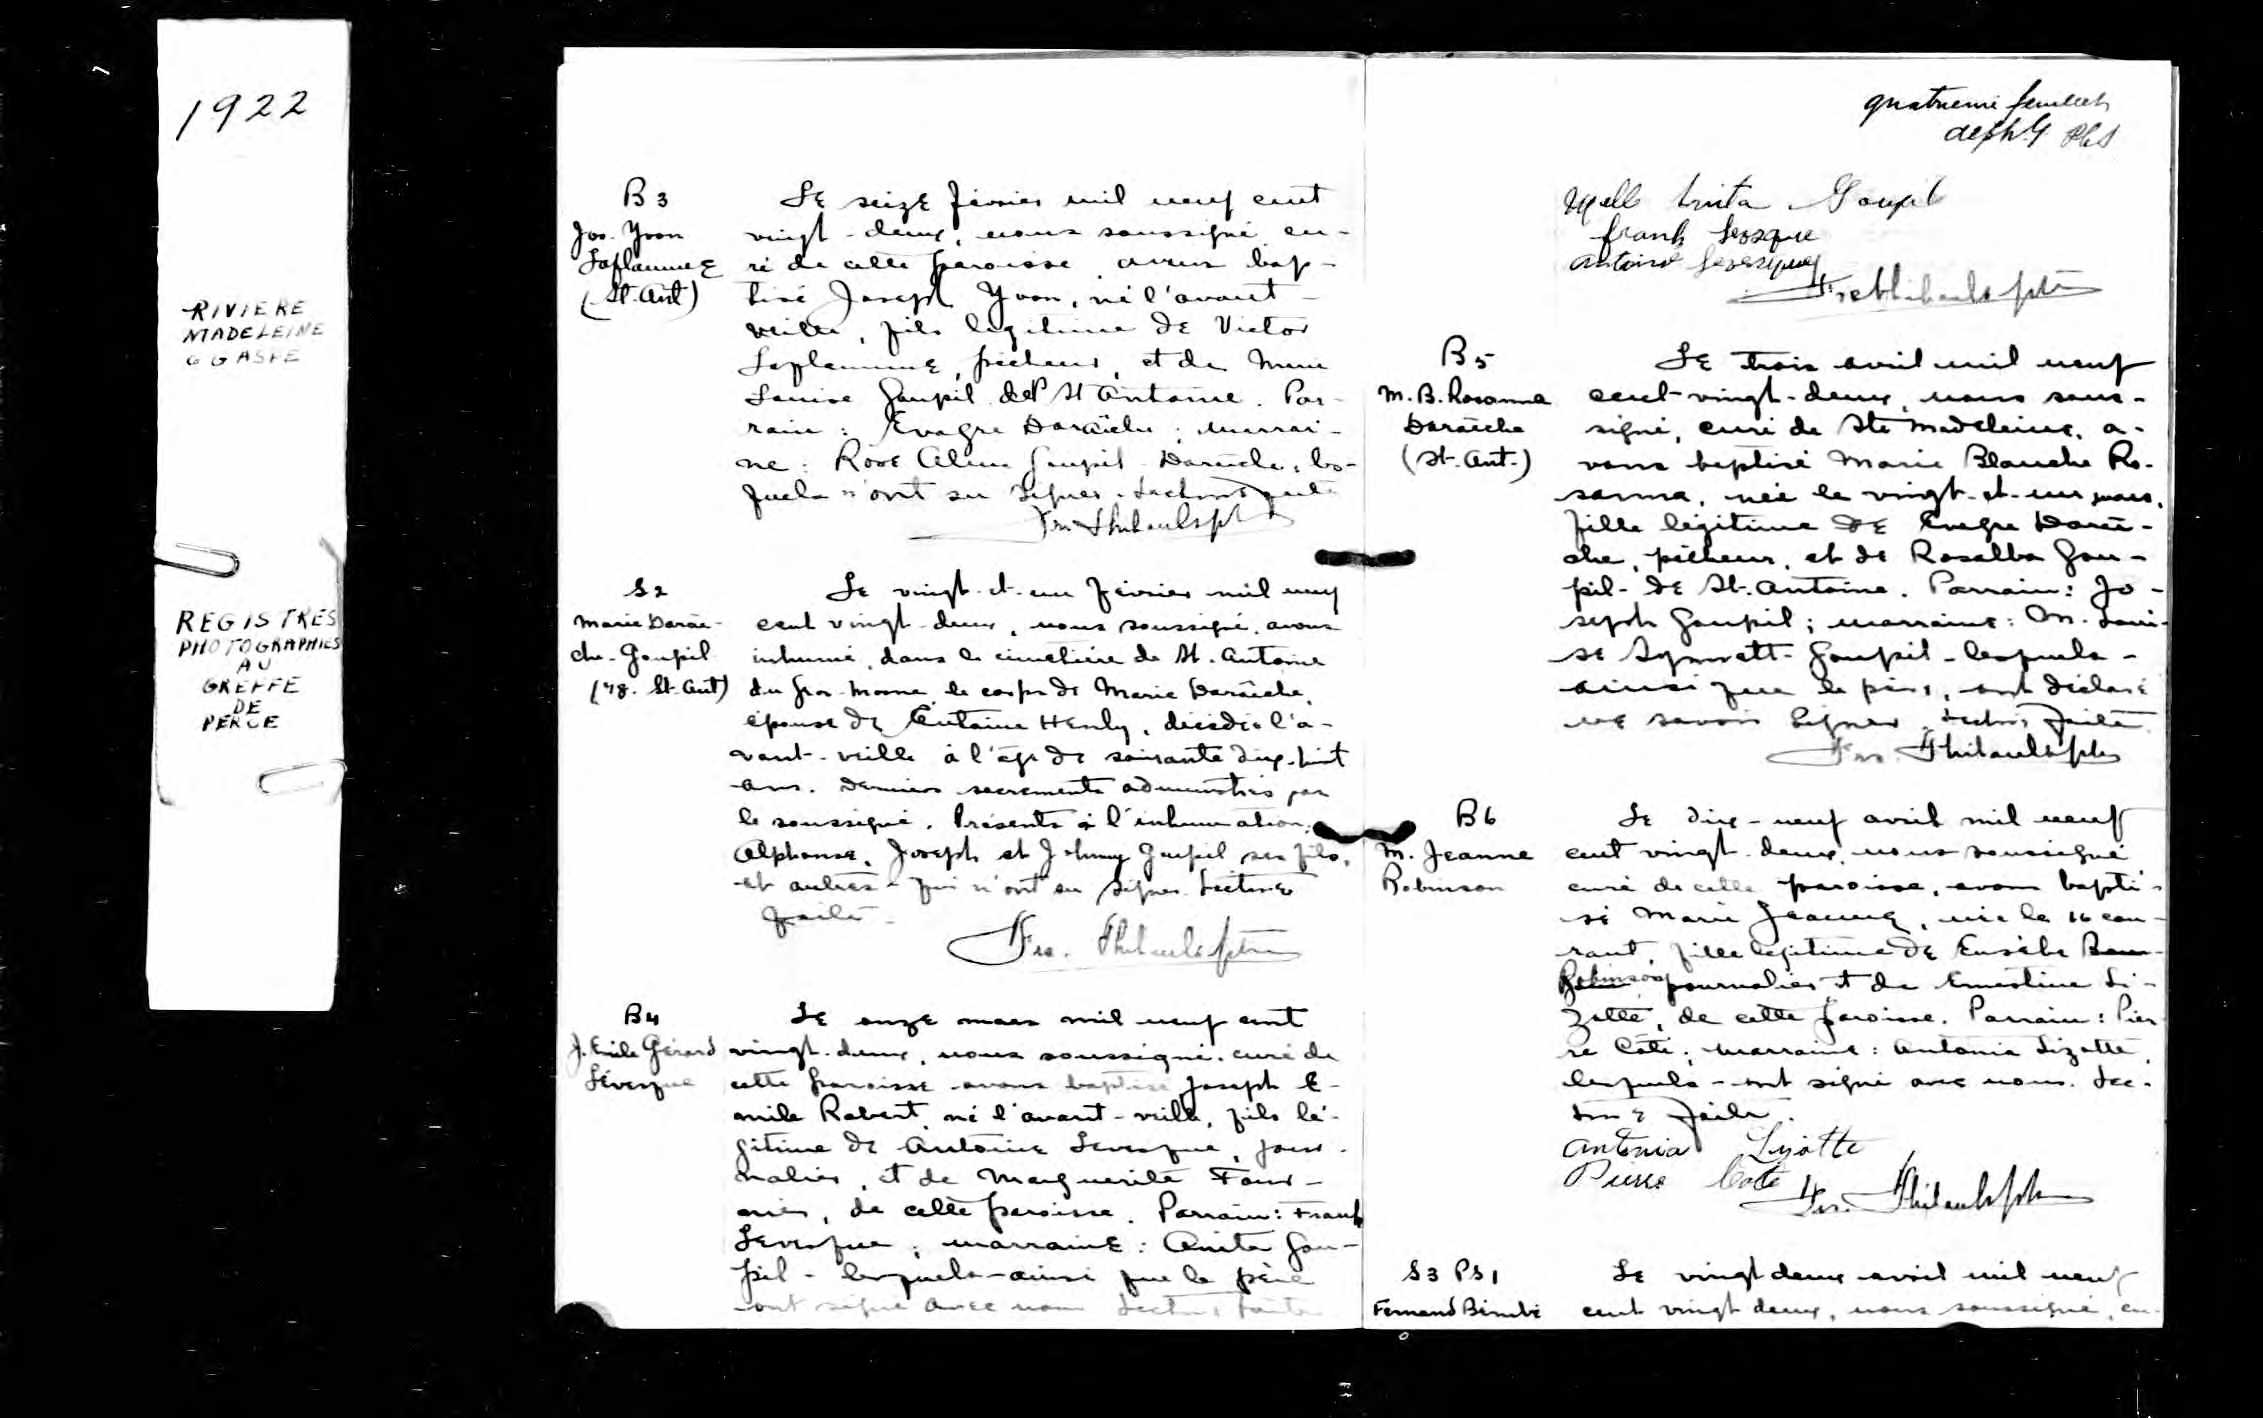 1922
RIVIERE
MADELEINE
G GASPE
REGISTRES
PHOTOGRAPHIES
AU
GREFFE
DE
PERCE
B 3
Jos. Yvon
Laflamme
(St. Ant)
Le seize février mil neuf cent
vingt-deux, nous soussigné cu-
ré de cette paroisse avons bap-
tisé Joseph Yvon, né l'avant-
veille, fils légitime de Victor
Laflamme, pêcheur, et de
Louise Goupil de St Antoine. Par-
rain : Evagre Daraîche ; marrai-
ne : Rose Alma Goupil Daraîche, les-
quels n'ont su signer. Lecture faite
Frs. Thibault ptre
S 2
Marie Daraî-
che-Goupil
(78. St. Ant)
Le vingt-et-un février mil neuf
cent vingt-deux, nous soussigné, avons
inhumé, dans le cimetière de St. Antoine
du Gros-Morne, le corps de Marie Daraîche,
épouse de Antoine Henly, décédée l'a-
vant-veille à l'âge de soixante dix-huit
ans. Derniers sacrements administrés par
le soussigné. Présents à l'inhumation:
Alphonse, Joseph et Johnny Goupil ses fils,
et autres - qui n'ont su signer. Lecture
faite -
Frs. Thibault ptre
B 4
J. Emile Gérard
Lévesque
Le onze mars mil neuf cent
vingt-deux, nous soussigné, curé de
cette paroisse avons baptisé Joseph E-
mile Robert, né l'avant-veille, fils lé-
gitime de Antoine Levesque, jour-
nalier, et de Marguerite Four-
nier, de cette paroisse. Parrain: Frank
Levesque ; marraine : Anita Gou-
pil - lesquels - ainsi que le père
ont signé avec nous Lecture faite
Melle Anita Goupil
frank Levsque
Antoine Levesque
Frs Thibault ptre
B 5
M. B. Rosanna
Daraîche
(St. Ant.)
Le trois avril mil neuf
cent-vingt-deux, nous sous-
signé, curé de Ste Madeleine, a-
vons baptisé Marie Blanche Ro-
sanna, née le vingt-et-un mars,
fille légitime de Evagre Daraî-
che, pêcheur, et de Rosalba Gou-
pil - de St. Antoine. Parrain: Jo-
seph Goupil ; marraine : M. Loui-
se Goupil - lesquels -
ainsi que le père, ont déclaré
ne savoir signer. Lecture faite
Frs. Thibault ptre
B 6
M. Jeanne
Robinson
Le dix-neuf avril mil neuf
cent vingt-deux, nous soussigné
curé de cette paroisse, avons bapti-
sé Marie Jeanne, née le 16 cou-
rant, fille légitime de Eusèbe
Robinson journalier et de Ernestine Li-
zotte, de cette paroisse. Parrain : Pier-
re Coté ; marraine : Antonia Lizotte,
lesquels - ont signé avec nous. Lec-
ture faite.
Antonia Lizotte
Pierre Coté
Frs. Thibault ptre
S3 PS1
Fernand Bérubé
Le vingt deux avril mil neuf
cent vingt deux, nous soussigné, cu-